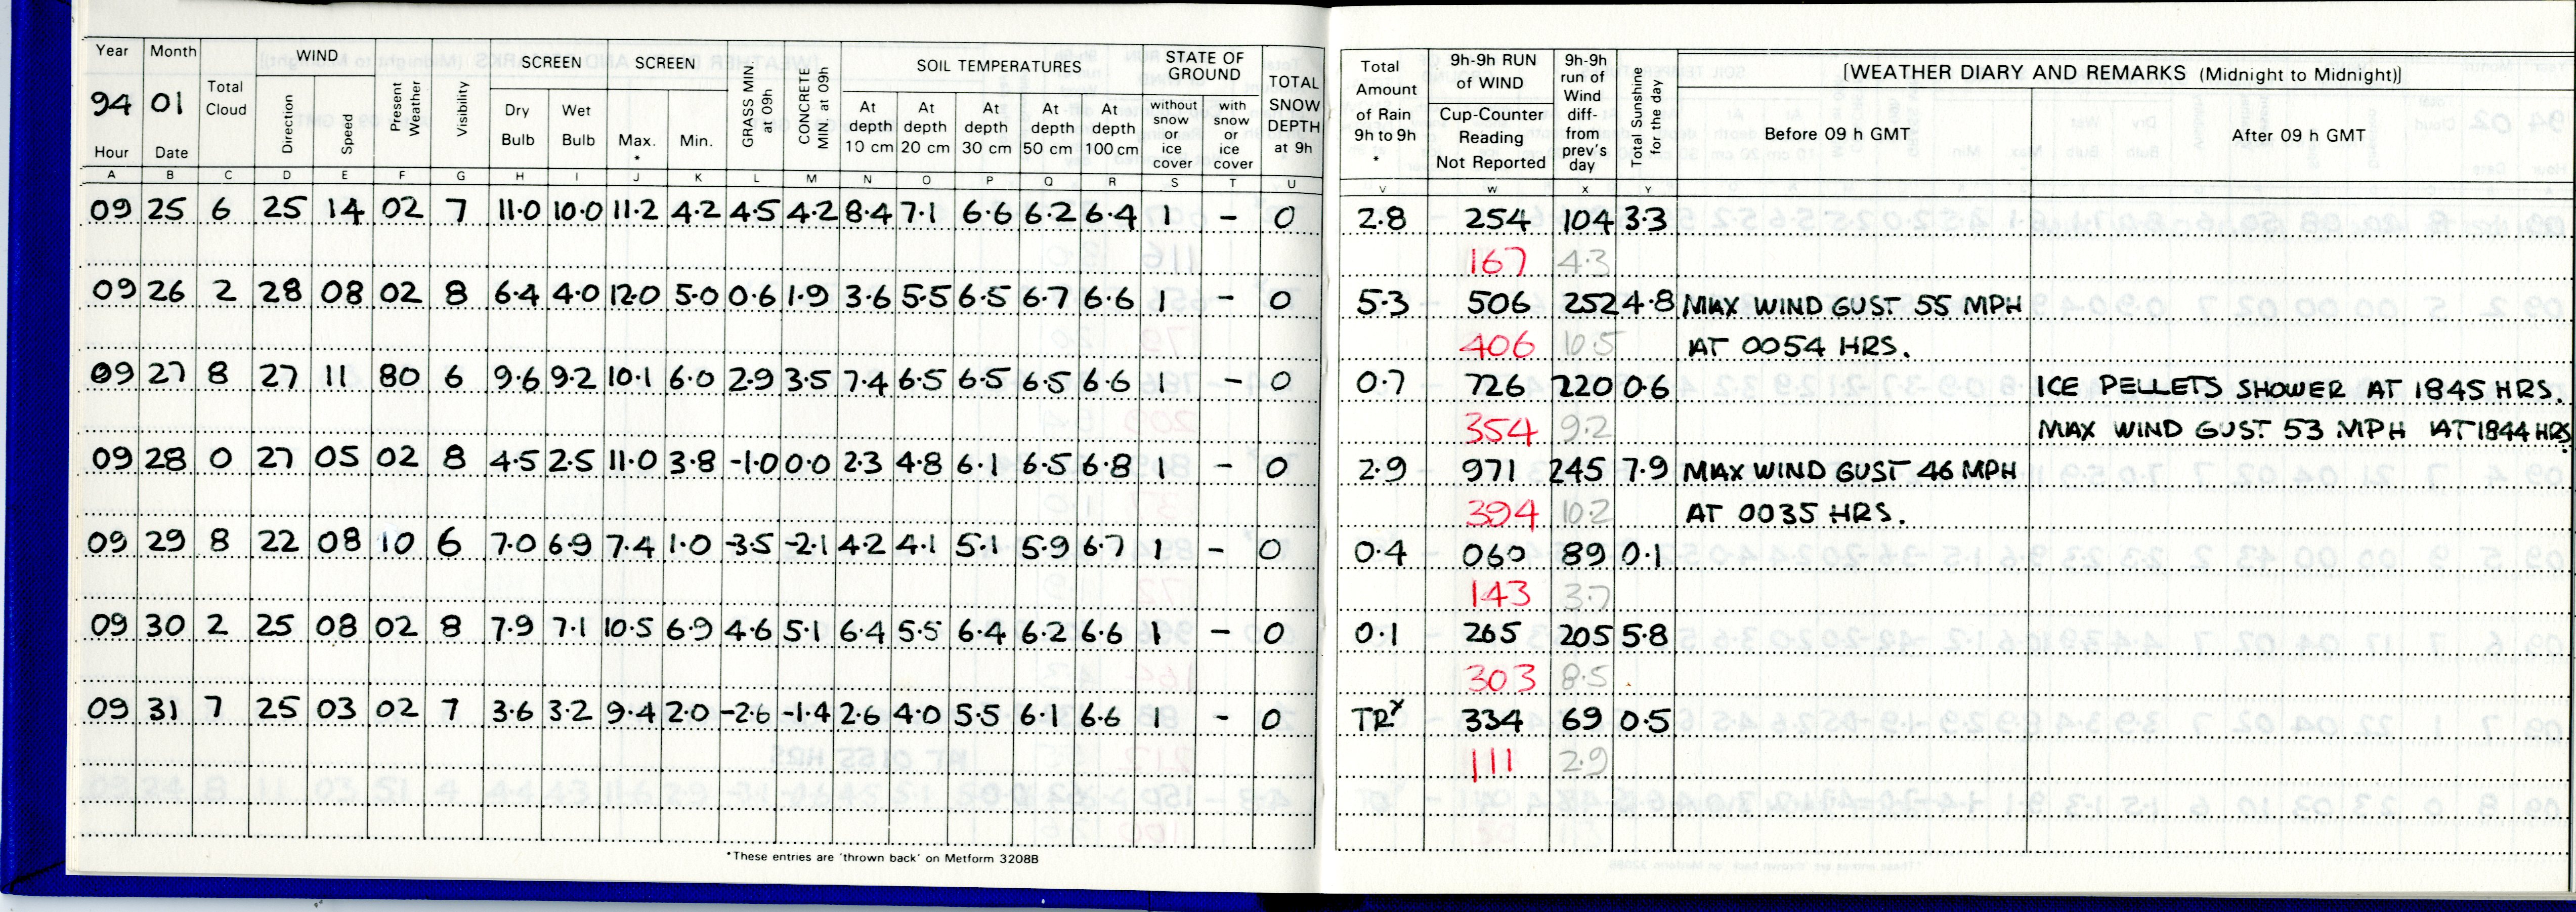 Year Month Total Cloud WIND Direction Speed Present Weather Visibility SCREEN Dry Bulb Wet Bulb SCREEN Max. * Min. GRASS MIN at 09h CONCRETE MIN. at 09h SOIL TEMPERATURES At depth 10 cm At depth 20 cm At depth 30 cm At depth 50 cm At depth 100 cm STATE OF GROUND without snow or ice cover with snow or ice cover TOTAL SNOW DEPTH at 9h Total Amount of Rain 9h to 9h * 9h-9h RUN of WIND Cup-Counter Reading Not Reported 9h-9h run of Wind diff- from prev's day Total Sunshine for the day [WEATHER DIARY AND REMARKS (Midnight to Midnight)] Before 09 h GMT After 09 h GMT
94 01
Hour Date
A B C D E F G H I J K L M N O P Q R S T U V W X Y
09 25 6 25 14 02 7 11.0 10.0 11.2 4.2 4.5 4.2 8.4 7.1 6.6 6.2 6.4 1 – 0 2.8 254 104 3.3
167 4.3
09 26 2 28 08 02 8 6.4 4.0 12.0 5.0 0.6 1.9 3.6 5.5 6.5 6.7 6.6 1 – 0 5.3 506 252 4.8 MAX WIND GUST 55 MPH
406 10.5 AT 0054 HRS.
09 27 8 27 11 80 6 9.6 9.2 10.1 6.0 2.9 3.5 7.4 6.5 6.5 6.5 6.6 1 – 0 0.7 726 220 0.6 ICE PELLETS SHOWER AT 1845 HRS.
354 9.2 MAX WIND GUST 53 MPH AT 1844 HRS.
09 28 0 27 05 02 8 4.5 2.5 11.0 3.8 -1.0 0.0 2.3 4.8 6.1 6.5 6.8 1 – 0 2.9 971 245 7.9 MAX WIND GUST 46 MPH
394 10.2 AT 0035 HRS.
09 29 8 22 08 10 6 7.0 6.9 7.4 1.0 -3.5 -2.1 4.2 4.1 5.1 5.9 6.7 1 – 0 0.4 060 89 0.1
143 3.7
09 30 2 25 08 02 8 7.9 7.1 10.5 6.9 4.6 5.1 6.4 5.5 6.4 6.2 6.6 1 – 0 0.1 265 205 5.8
303 8.5
09 31 7 25 03 02 7 3.6 3.2 9.4 2.0 -2.6 -1.4 2.6 4.0 5.5 6.1 6.6 1 – 0 TRx 334 69 0.5
111 2.9
*These entries are 'thrown back' on Metform 3208B